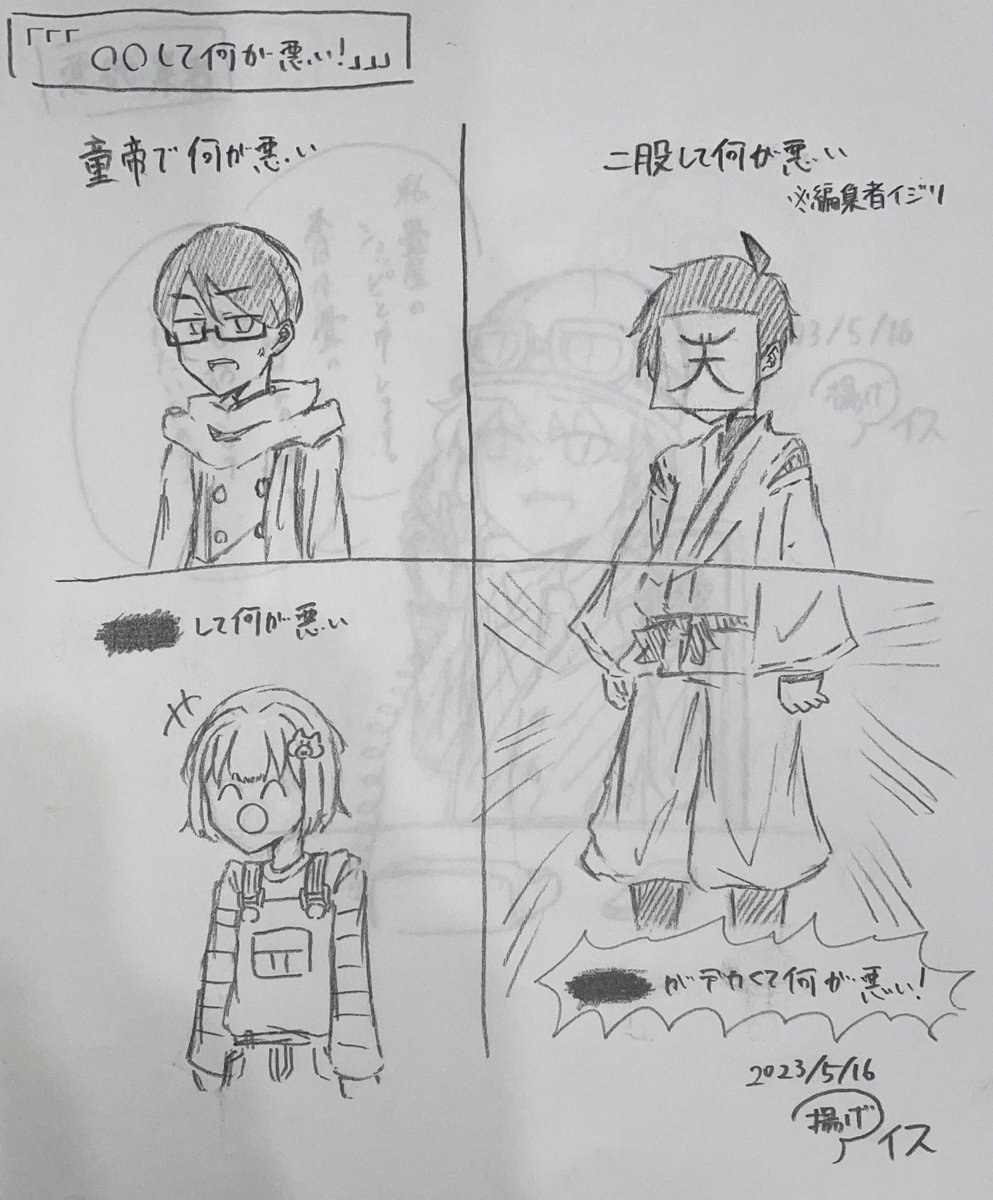 「「「
〇〇して何が悪い!」」」
童帝で何が悪い
二股して何が悪い
※編集者イジリ
天
して何が悪い
がデカくて何が悪い!
2023/5/16
揚げ
アイス